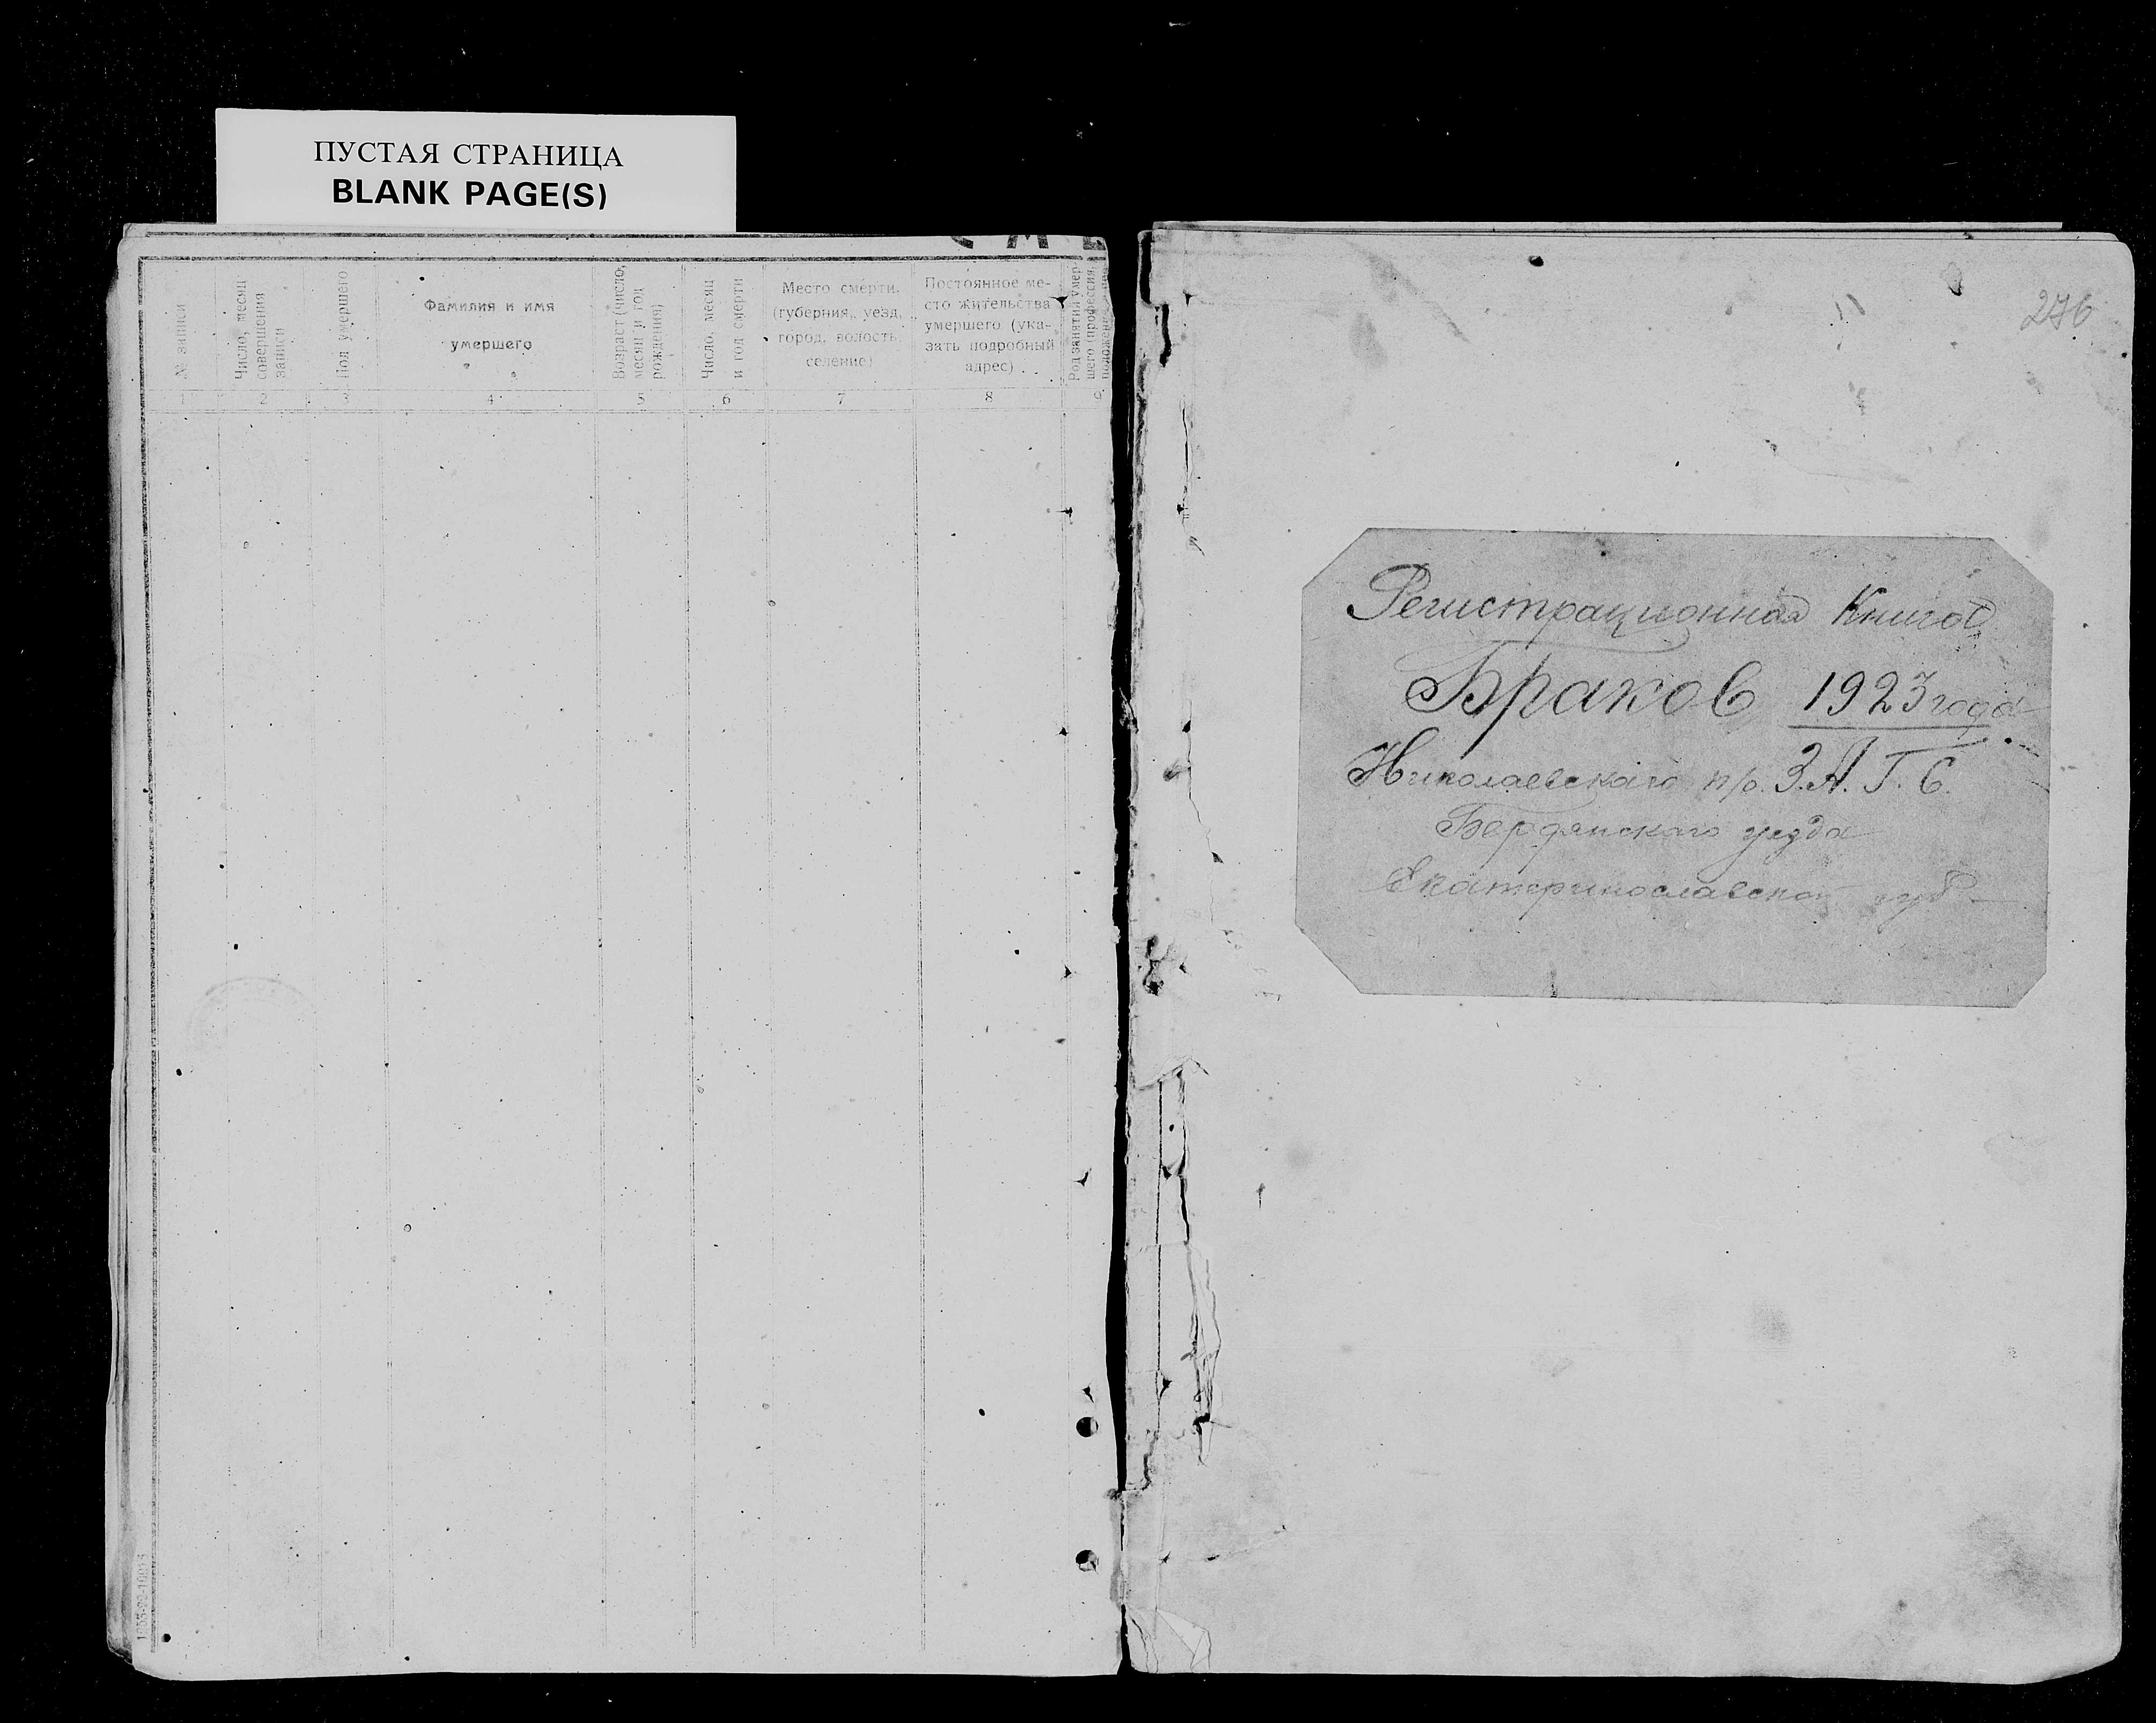 ПУСТАЯ СТРАНИЦА
BLANK PAGE(S)
№ записи
Число, месяц
совершения
записи
Пол умершего
Фамилия и имя
умершего
Возраст (число,
месяц и год
рождения)
Число, месяц
и год смерти
Место смерти.
(губерния, уезд,
город, волость,
селение)
Постоянное ме-
сто жительства
умершего (ука-
зать подробный
адрес)
Род занятий умер-
шего (профессия,
1 2 3 4 5 6 7 8 9
276
Регистрационная Книга
Браков 1923 года
Николаевскаго п/о. З.А.Г.С.
Бердянскаго уезда
Екатеринославской губ.